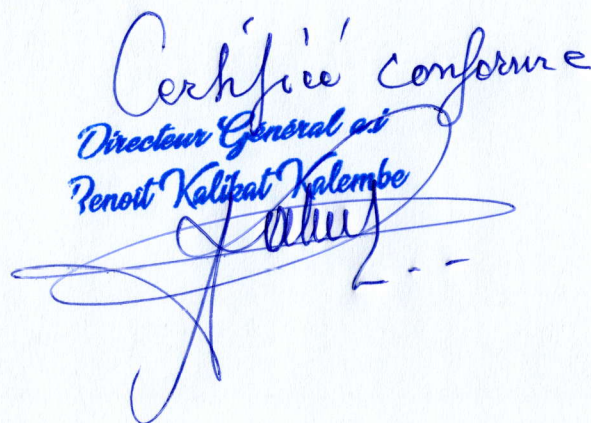 Certifié conforme
Directeur Général a.i
Benoit Kalikat Kalembe